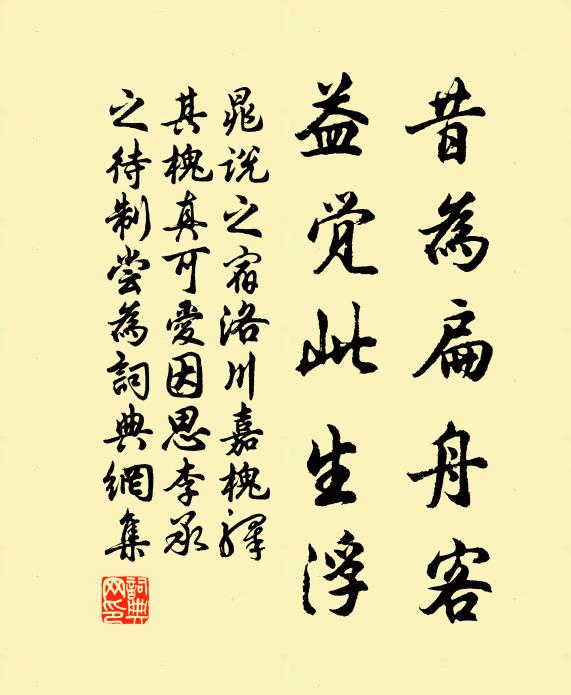 昔為扁舟客
益觉此生浮
晁说之宿洛川嘉槐驿
其槐真可愛因思李承
之待制尝為詞典網集
詞典網印